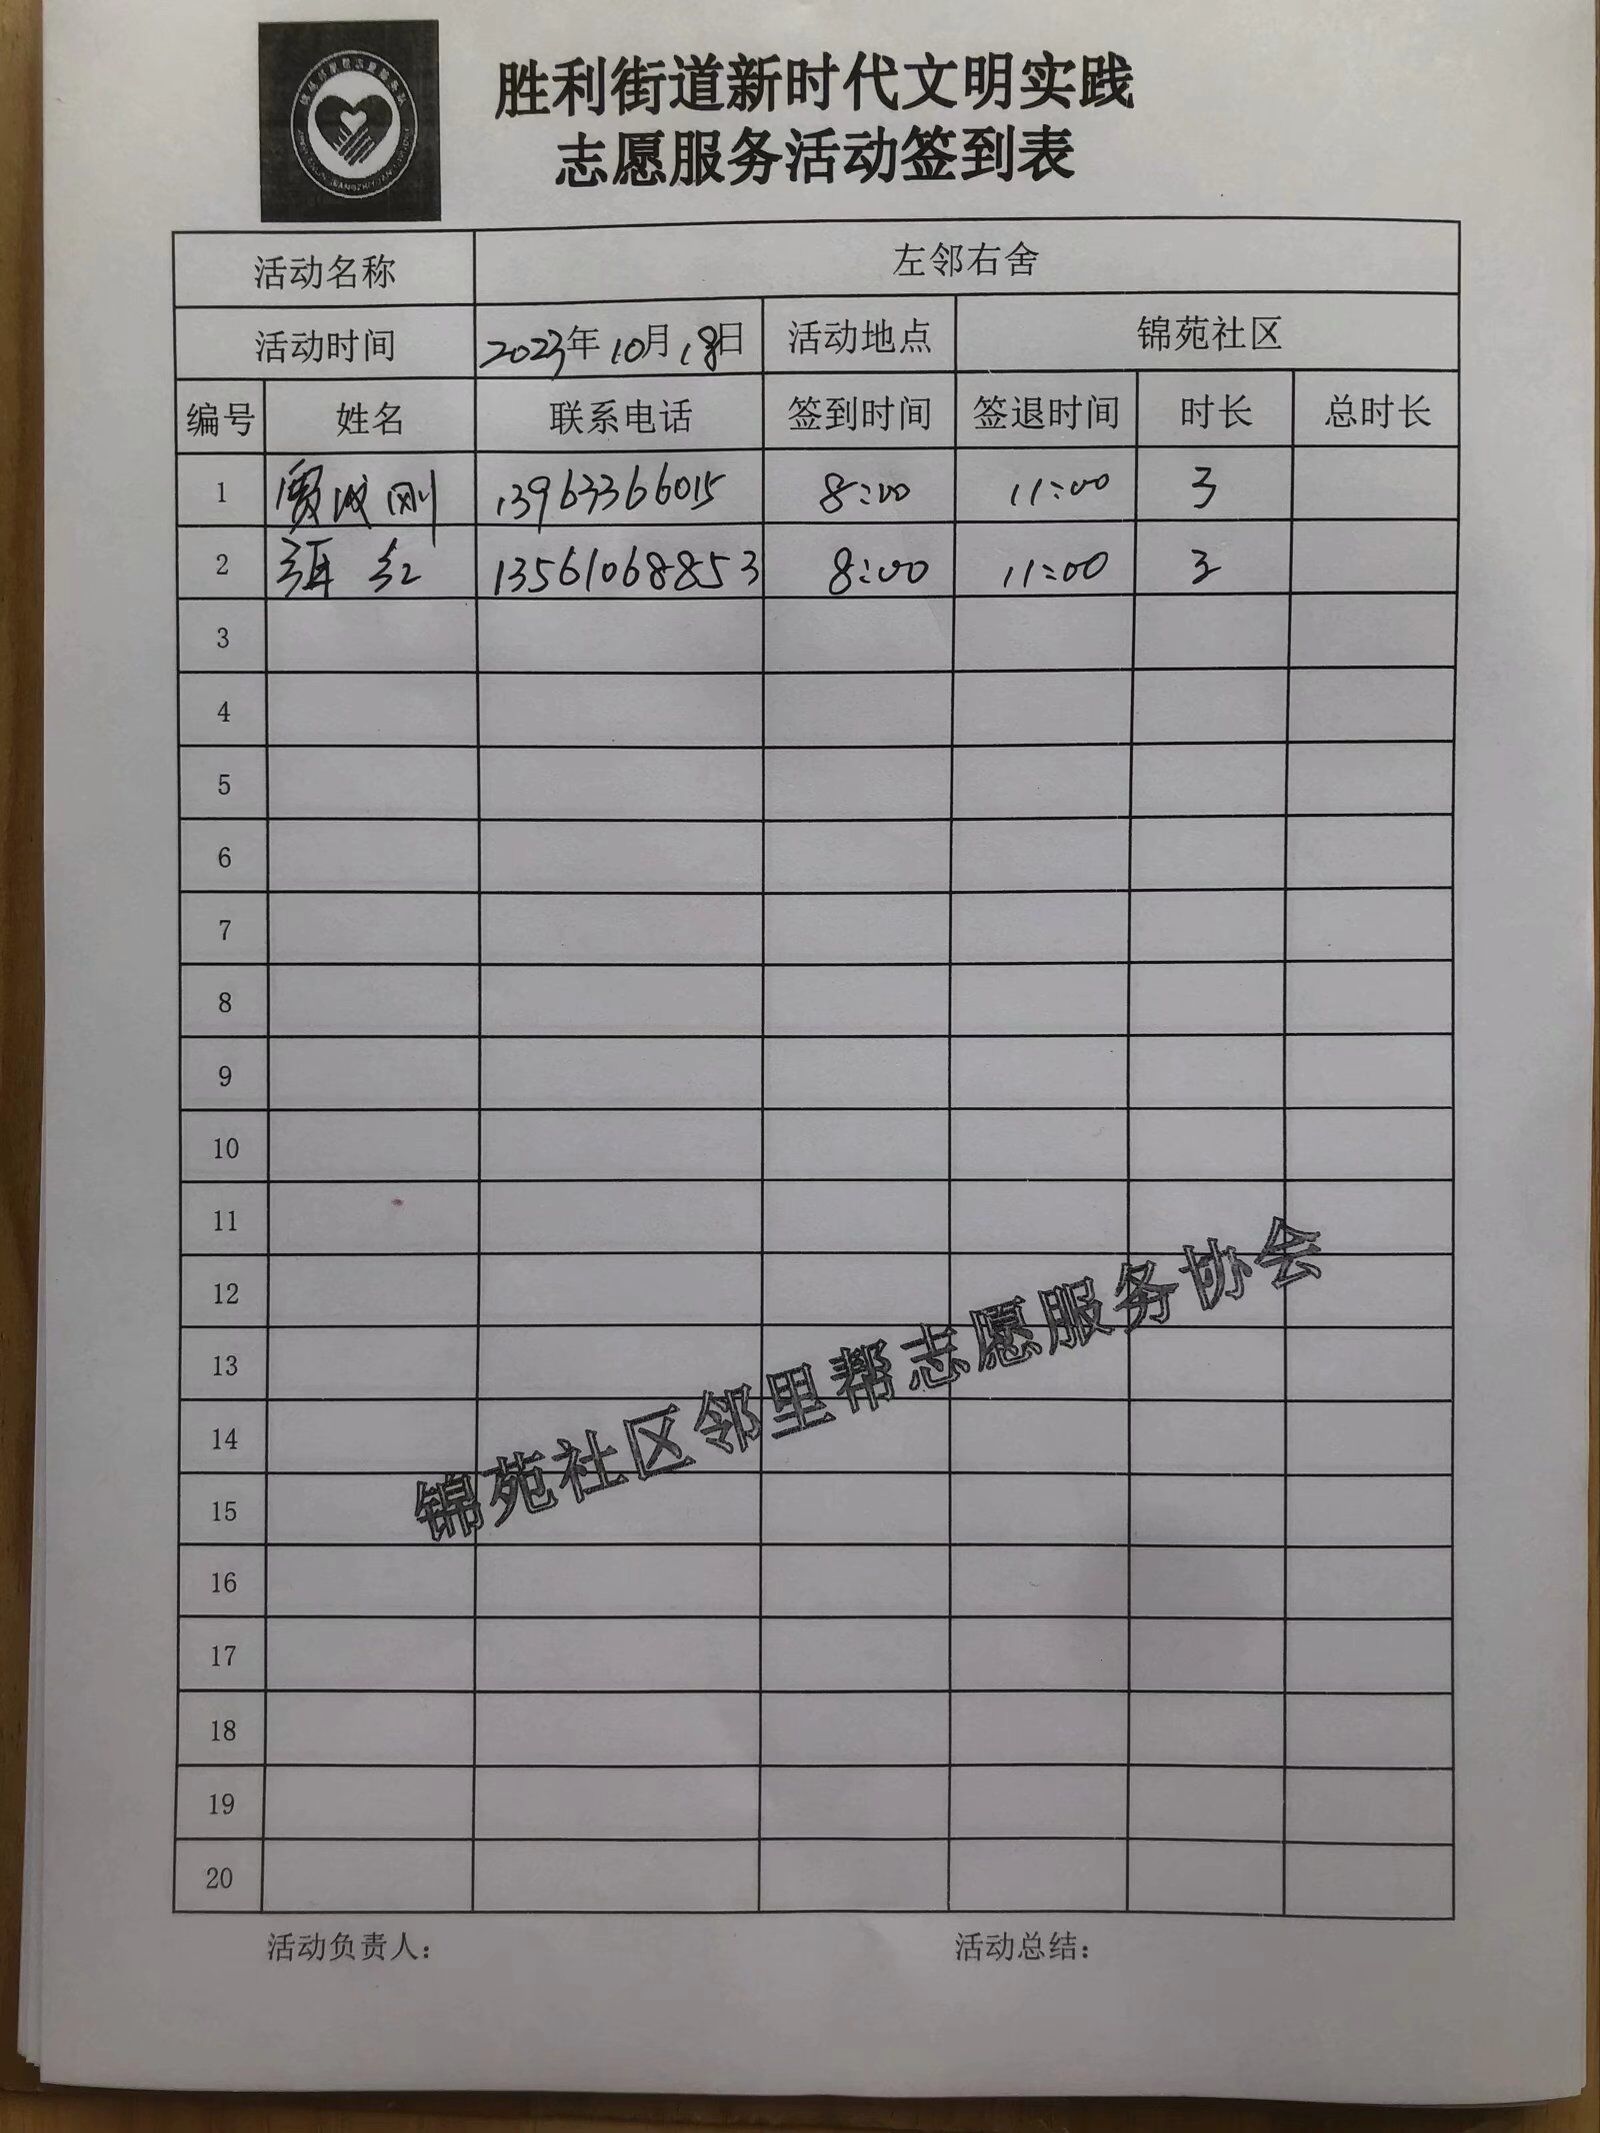 胜利街道新时代文明实践
志愿服务活动签到表
活动名称 左邻右舍
活动时间 2023年10月18日 活动地点 锦苑社区
编号 姓名 联系电话 签到时间 签退时间 时长 总时长
1 贾 刚 13963366015 8:00 11:00 3
2 红 13561068853 8:00 11:00 3
3
4
5
6
7
8
9
10
11
12
13
14
15
16
17
18
19
20
锦苑社区邻里帮志愿服务协会
活动负责人: 活动总结: